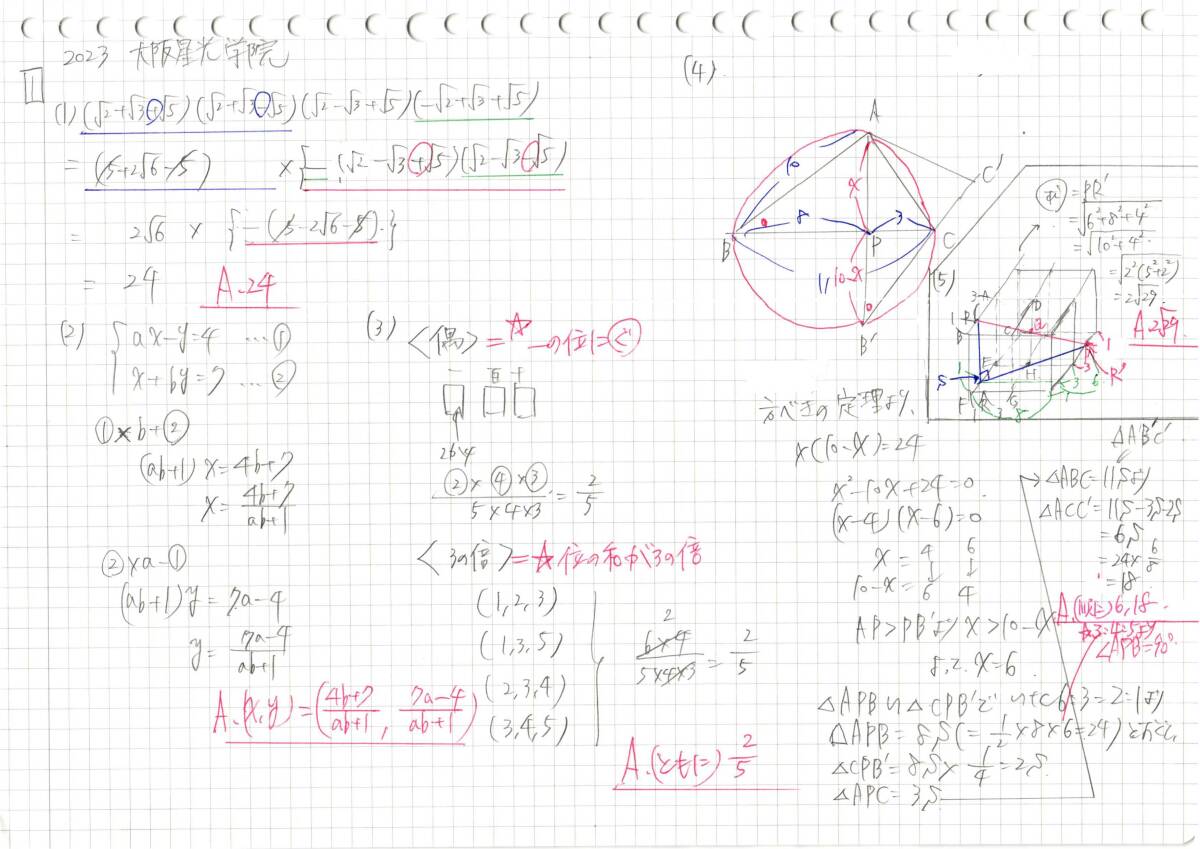 2023 大阪星光学院
1
(1) (√2+√3+√5)(√2+√3-√5)(√2-√3+√5)(-√2+√3+√5)
= (5+2√6-5) × {-(√2-√3+√5)(√2-√3-√5)
= 2√6 × {-(5-2√6-5)}
= 24 A.24
(2) ax-y=4 … ①
x+by=7 … ②
①×b+②
(ab+1)x=4b+7
x=4b+7/ab+1
②×a-①
(ab+1)y=7a-4
y=7a-4/ab+1
A.(x,y)=(4b+7/ab+1, 7a-4/ab+1)
(3) <偶>=☆一の位に②④
一 百 十
2か4
②×④×③/5×4×3=2/5
<3の倍>=☆位の和が3の倍
(1,2,3)
(1,3,5)
(2,3,4)
(3,4,5)
2
6×4/5×4×3=2/5
A.(ともに)2/5
(4)
A
C'
10
x
8
3
B
P
C
11
10-x
B'
方べきの定理より、
x(10-x)=24
x²-10x+24=0
(x-4)(x-6)=0
x=4 6
↓ ↓
10-x=6 4
AP>PB'より x>10-x
よって x=6
△APB∽△CPB'で
6:3=2:1より
△APB=8S(=1/2×8×6=24)とおくと
△CPB'=8S×1/4=2S
△APC=3S
△AB'C'
→△ABC=11Sより
△ACC'=11S-3S-2S
=6S
=24×6/8
=18
A.(順に)6,18
☆3:4:5より
∠APB=90°
(5)
=PR'
=√6²+8²+4²
=√10²+4²
=√2²(5²+2²)
=2√29
A.2√29
D
C
Q
B
E
H
S
F
G
R'
3
6
8
1